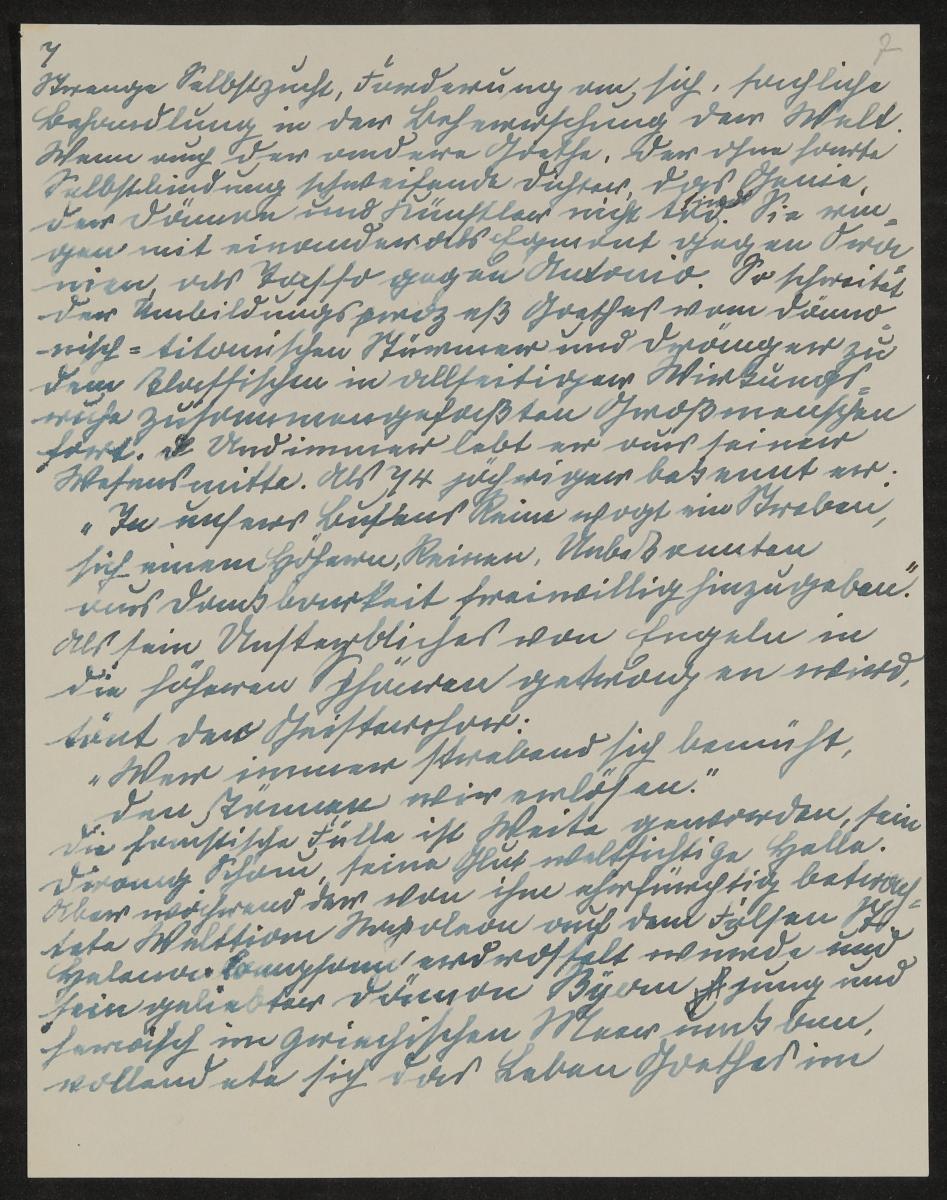 7 7
Strenge Selbstzucht, Forderung an sich, sachliche
Behandlung in der Beherrschung der Welt.
Wenn auch der andere Goethe, der ohne harte
Selbstbindung schweifende Dichter, das Genie,
der Dämon und Künstler nicht tot sind. Sie rin-
gen mit einander als Egmont gegen Ora
nien, als Tasso gegen Antonio. So schreitet
der Umbildungsprozeß Goethes vom dämo
-nisch-titanischen Stürmer und Dränger zu
dem klassischen in allseitiger Wirkungs-
zusammengefaßten Großmenschen
fort. Und immer lebt er aus seiner
Wesensmitte. Als 74 jähriger bekennt er:
"In unsers Busens Reine wogt ein Streben,
sich einem Höhern, Reinen, Unbekannten
aus Dankbarkeit freiwillig hinzugeben".
Als sein Unsterbliches von Engeln in
die höheren Sphären getragen wird,
tönt der Geisterchor:
"Wer immer strebend sich bemüht,
den können wir erlösen."
Die faustische Fülle ist Weite geworden, sein
Drang Schau, seine Glut weltsichtige Helle.
Aber während der von ihm ehrfürchtig betrach-
tete Welttitan Napoleon auf dem Felsen St
Helena erdrosselt wurde und
sein geliebter Dämon Byron jung und
heroisch im griechischen Meer
vollendete sich das Leben Goethes im